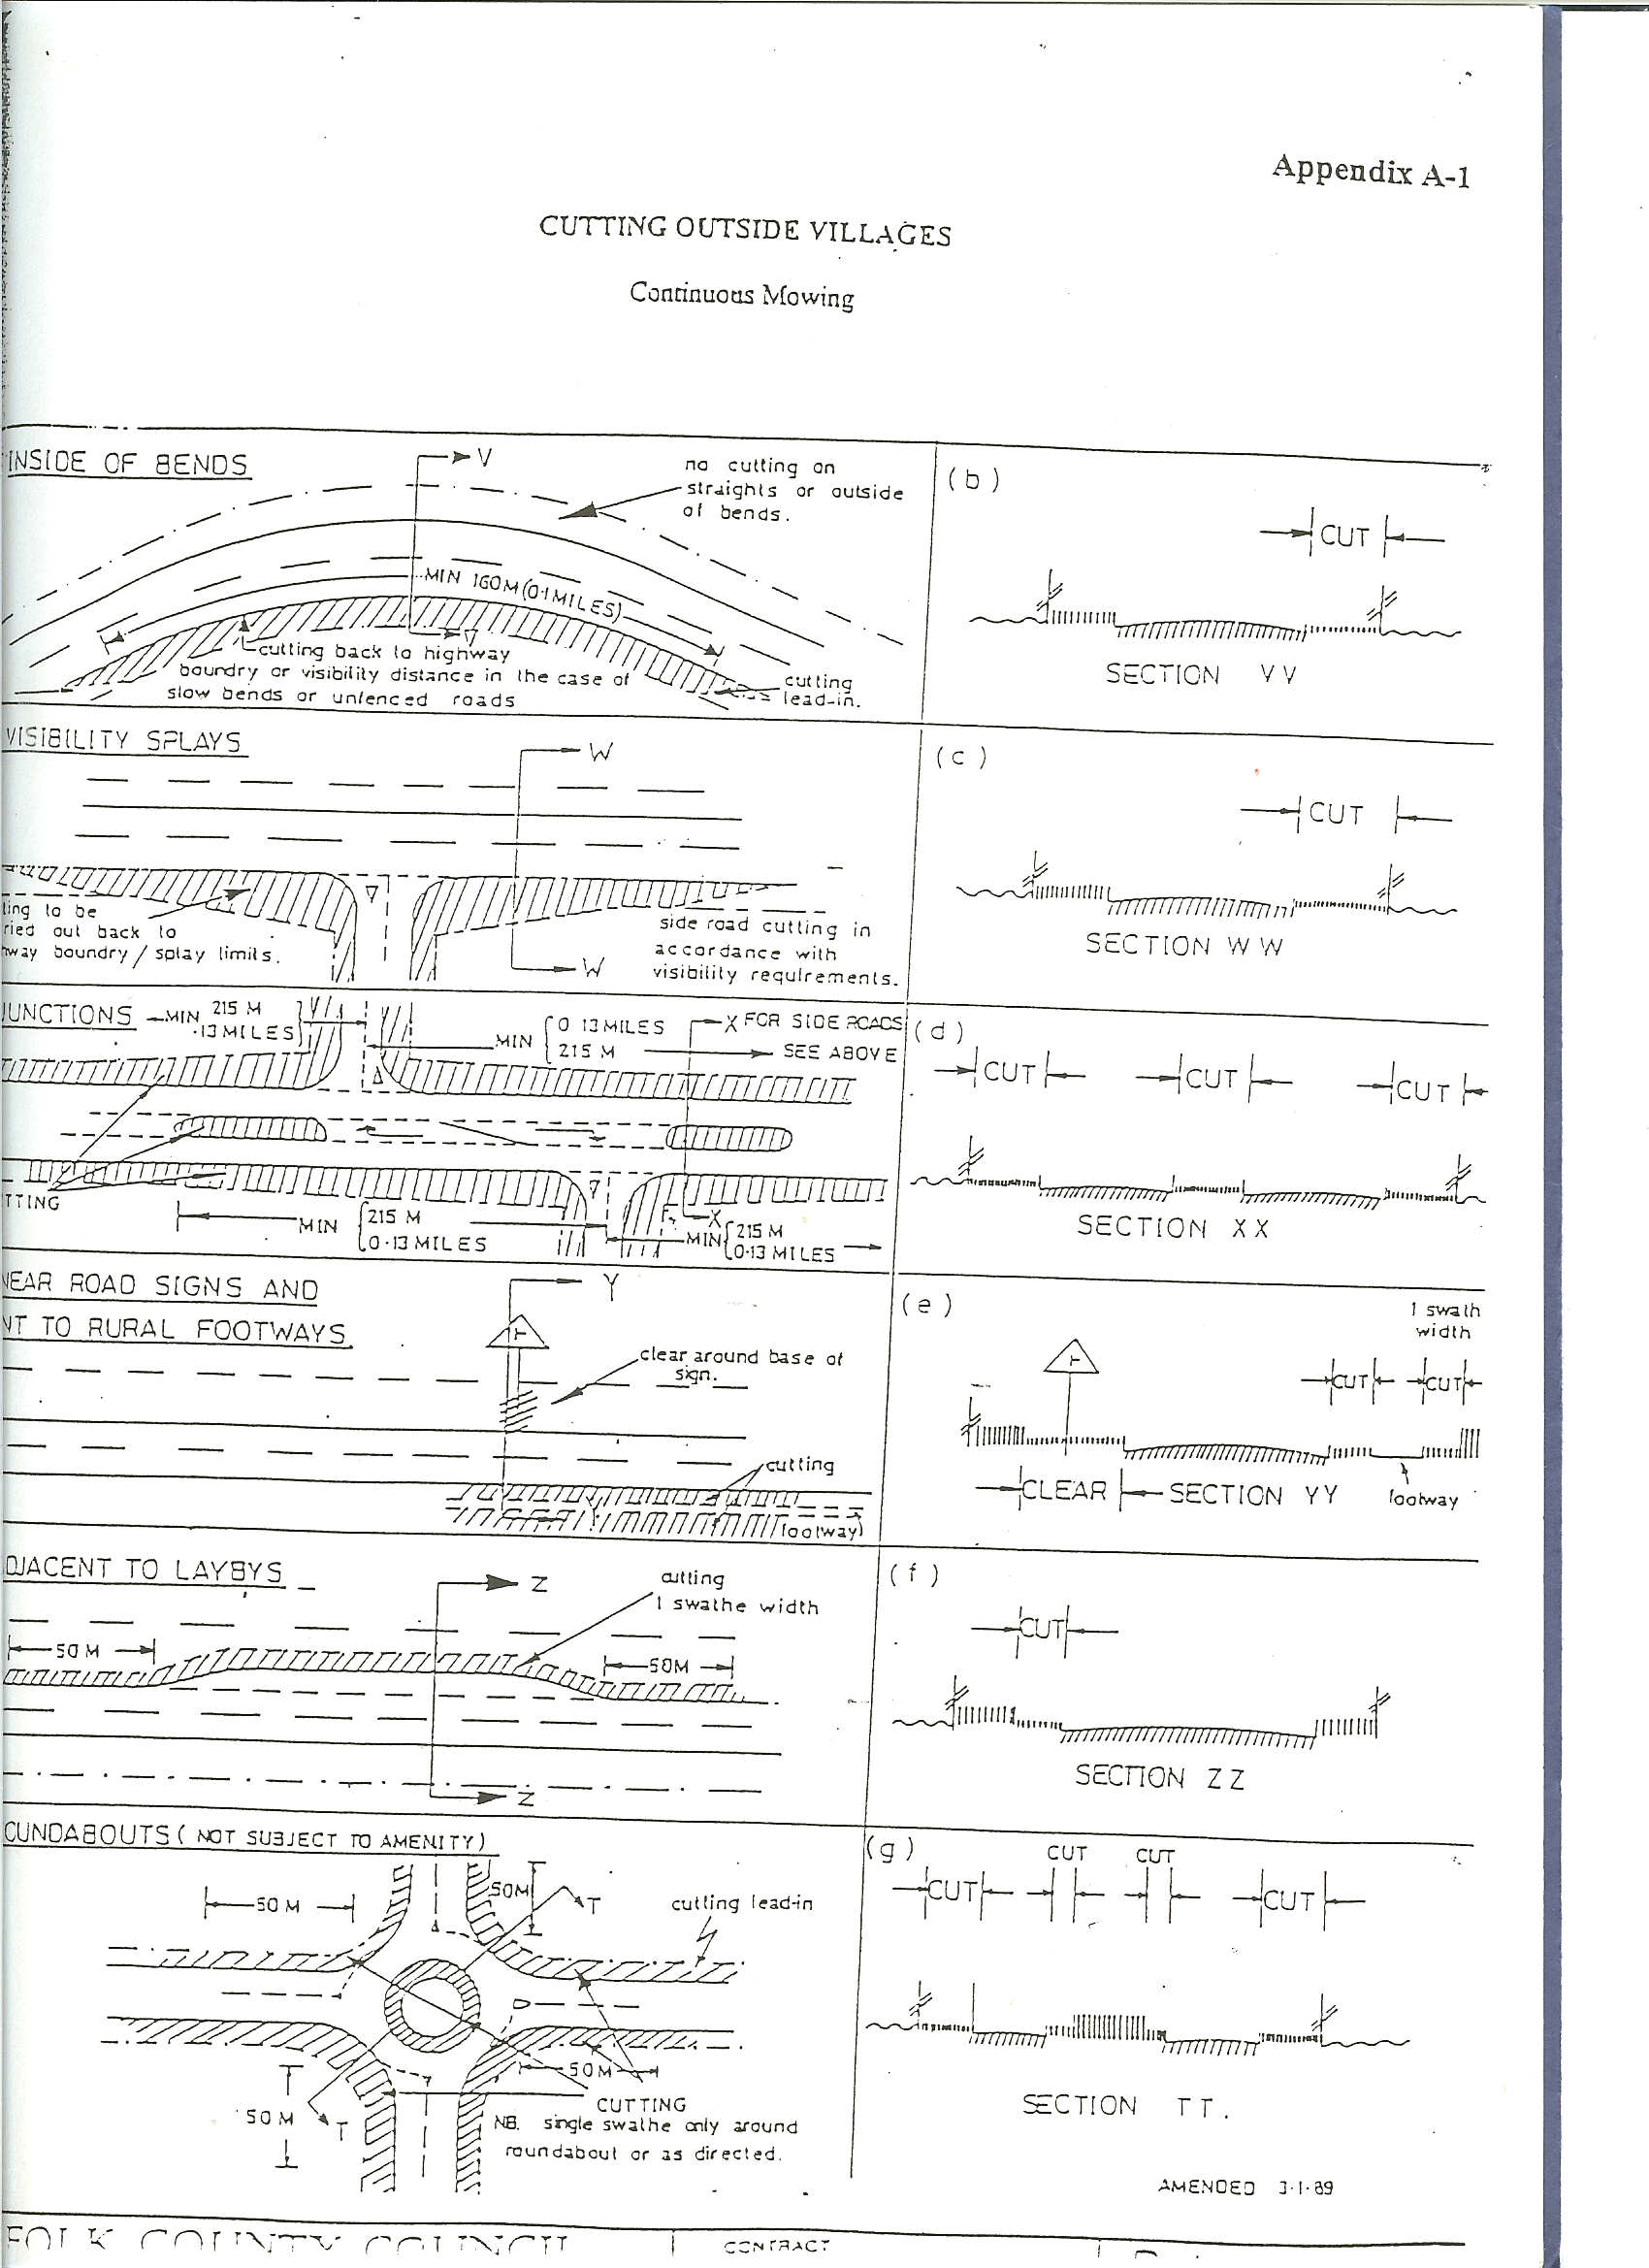 Appendix A-1
CUTTING OUTSIDE VILLAGES
Continuous Mowing
INSIDE OF BENDS
V
no cutting on
straights or outside
of bends.
MIN 160M (0·1 MILES)
V
cutting back to highway
boundry or visibility distance in the case of
slow bends or unfenced roads
cutting
lead-in.
(b)
CUT
SECTION VV
VISIBILITY SPLAYS
W
ting to be
ried out back to
hway boundry / splay limits.
side road cutting in
accordance with
visibility requirements.
W
(c)
CUT
SECTION WW
JUNCTIONS
MIN 215 M
·13 MILES
MIN 0 13 MILES
215 M
X FOR SIDE ROADS
SEE ABOVE
TTING
MIN 215 M
0·13 MILES
X
MIN 215 M
0·13 MILES
(d)
CUT CUT CUT
SECTION XX
NEAR ROAD SIGNS AND
NT TO RURAL FOOTWAYS
Y
T
clear around base of
sign.
cutting
footway
(e)
1 swath
width
T
CUT CUT
CLEAR SECTION YY footway
DJACENT TO LAYBYS
Z
cutting
1 swathe width
50M
50M
Z
(f)
CUT
SECTION ZZ
OUNDABOUTS ( NOT SUBJECT TO AMENITY )
50M
50M
T
cutting lead-in
50M
50M
T
CUTTING
NB. single swathe only around
roundabout or as directed.
(g)
CUT CUT
CUT CUT
SECTION TT.
AMENDED 3·1·89
FOLK COUNTY COUNCIL
CONTRACT